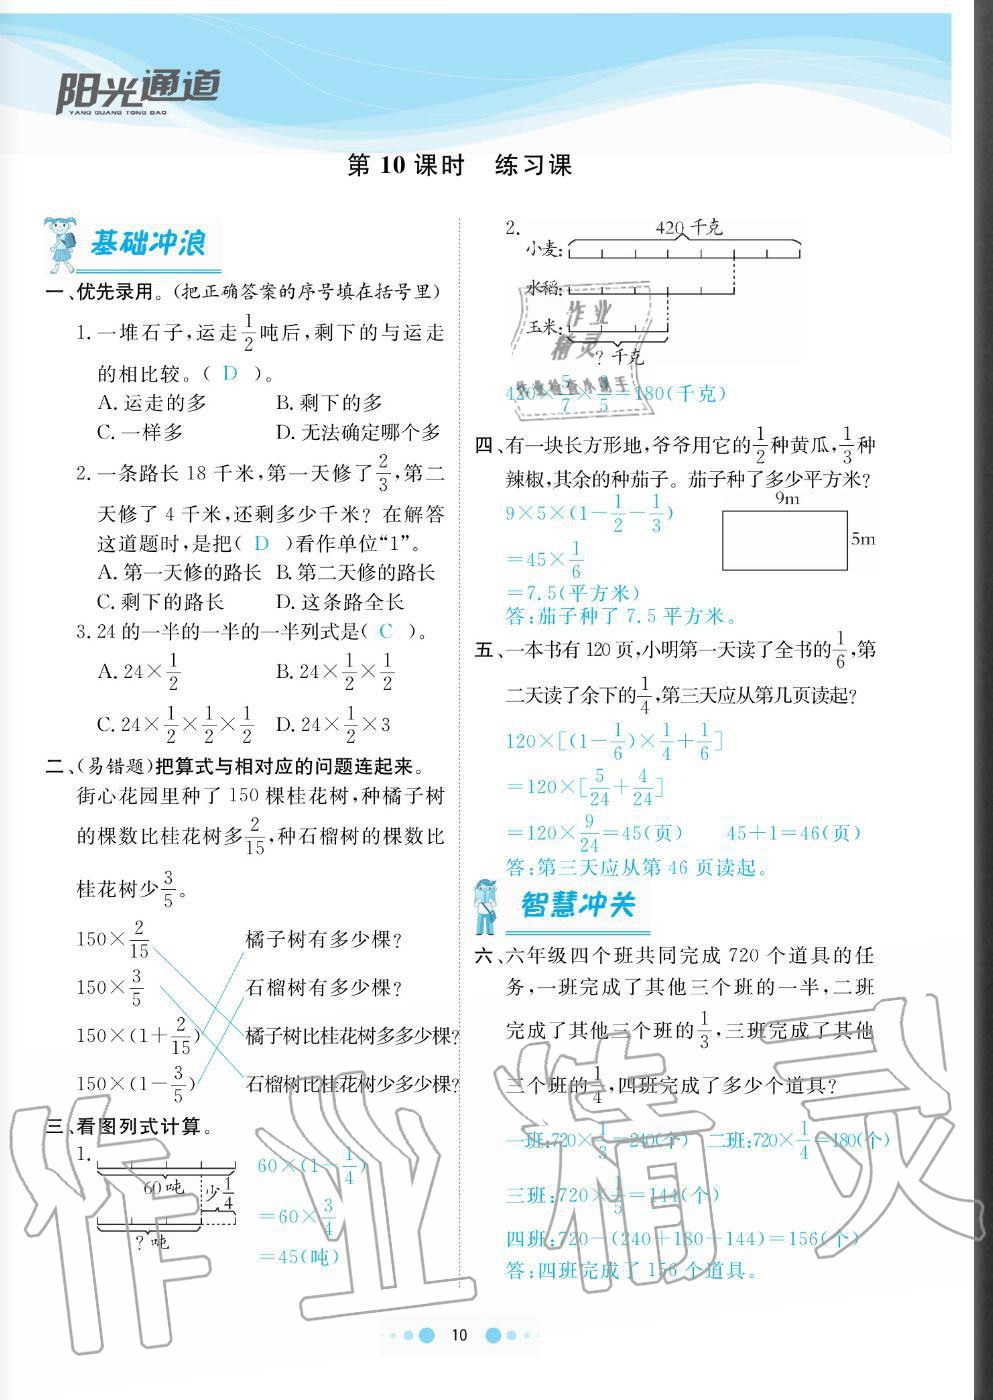 阳光通道
YANG GUANG TONG DAO
第 10 课时 练习课
基础冲浪
一、优先录用。(把正确答案的序号填在括号里)
1. 一堆石子,运走1/2吨后,剩下的与运走
的相比较。( D )。
A. 运走的多 B. 剩下的多
C. 一样多 D. 无法确定哪个多
2. 一条路长 18 千米,第一天修了2/3,第二
天修了 4 千米,还剩多少千米? 在解答
这道题时,是把( D )看作单位“1”。
A. 第一天修的路长 B. 第二天修的路长
C. 剩下的路长 D. 这条路全长
3. 24 的一半的一半的一半列式是( C )。
A. 24×1/2 B. 24×1/2×1/2
C. 24×1/2×1/2×1/2 D. 24×1/2×3
二、(易错题)把算式与相对应的问题连起来。
街心花园里种了 150 棵桂花树,种橘子树
的棵数比桂花树多2/15,种石榴树的棵数比
桂花树少3/5。
150×2/15 橘子树有多少棵?
150×3/5 石榴树有多少棵?
150×(1+2/15) 橘子树比桂花树多多少棵?
150×(1-3/5) 石榴树比桂花树少多少棵?
三、看图列式计算。
1.
60吨
少1/4
?吨
60×(1-1/4)
=60×3/4
=45(吨)
2.
420 千克
小麦:
水稻:
玉米:
? 千克
420×5/7×3/5=180(千克)
作业
精灵
作业检查小助手
四、有一块长方形地,爷爷用它的1/2种黄瓜,1/3种
辣椒,其余的种茄子。茄子种了多少平方米?
9m
5m
9×5×(1-1/2-1/3)
=45×1/6
=7.5(平方米)
答:茄子种了 7.5 平方米。
五、一本书有 120 页,小明第一天读了全书的1/6,第
二天读了余下的1/4,第三天应从第几页读起?
120×[(1-1/6)×1/4+1/6]
=120×[5/24+4/24]
=120×9/24=45(页) 45+1=46(页)
答:第三天应从第 46 页读起。
智慧冲关
六、六年级四个班共同完成 720 个道具的任
务,一班完成了其他三个班的一半,二班
完成了其他三个班的1/3,三班完成了其他
三个班的1/4,四班完成了多少个道具?
一班:720×1/3=240(个) 二班:720×1/4=180(个)
三班:720×1/5=144(个)
四班:720-(240+180+144)=156(个)
答:四班完成了 156 个道具。
作业精灵
10